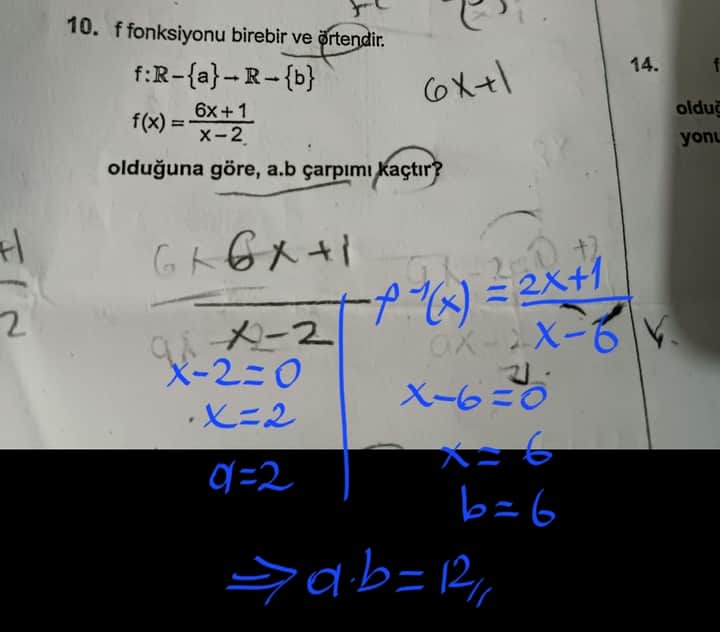 10. f fonksiyonu birebir ve örtendir.
f:R-{a}→R-{b}
f(x) = 6x+1 / x-2
olduğuna göre, a.b çarpımı kaçtır?
6x+1
14.
olduğ
yonu
+1
2
6x+1
x-2
x-2=0
x=2
a=2
f⁻¹(x) = 2x+1 / x-6
x-6=0
x=6
b=6
⇒a.b=12//